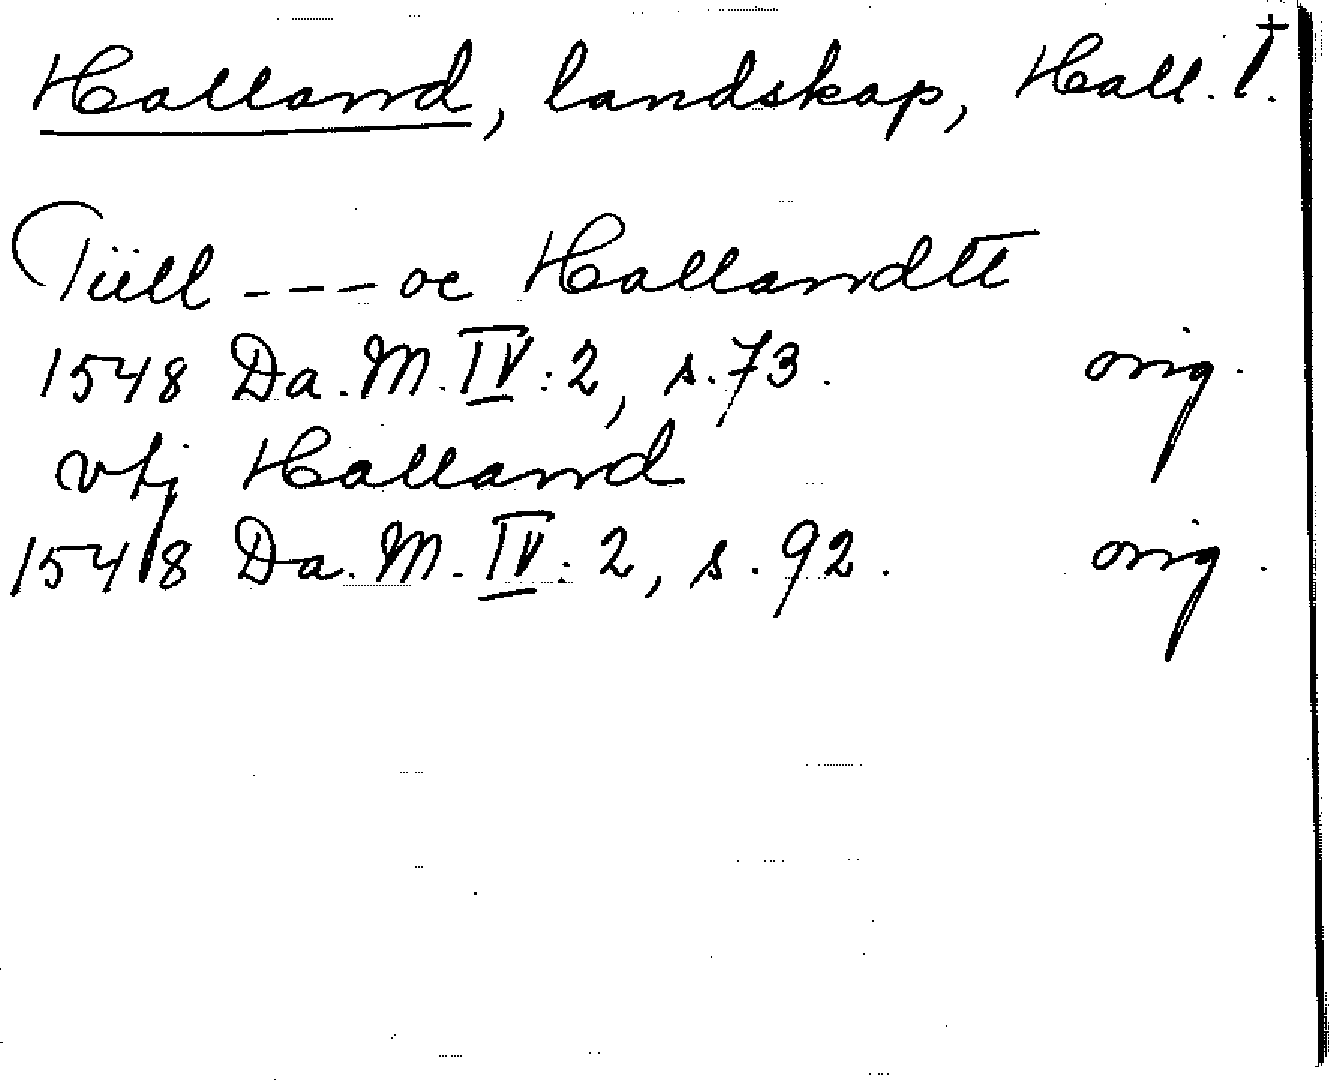 Halland, landskap, Hall. l.
Tiüll --- oc Hallandtt
1548 Da. M. IV:2, s. 73. orig.
vtj Halland
1548 Da. M. IV:2, s. 92. orig.